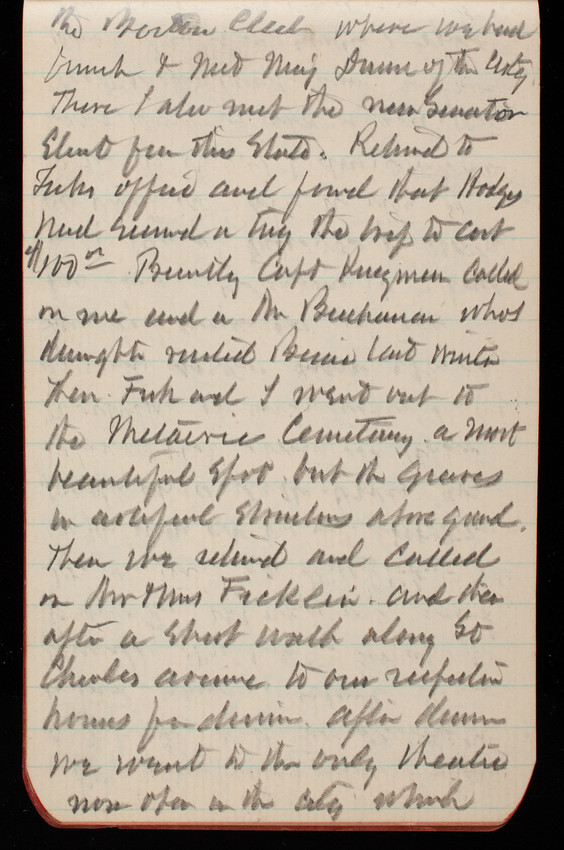 the Boston Club where we had
lunch & met Maj of the City
There I also met the new Senator
Elect for this State. Returned to
office and found that Hodges
had secured a tug the trip to cost
$100 00 Presently Capt called
on me and a Mr Buchanan whose
daughter visited Bessie last winter
Then and I went out to
the Metairie Cemetery. a most
beautiful spot. but the graves
in artificial structures above ground.
Then we returned and called
on Mr & Mrs Ficklin. and then
after a short walk along St
Charles avenue to our respective
homes for dinner. after dinner
we went to the only theatre
now open in the city which